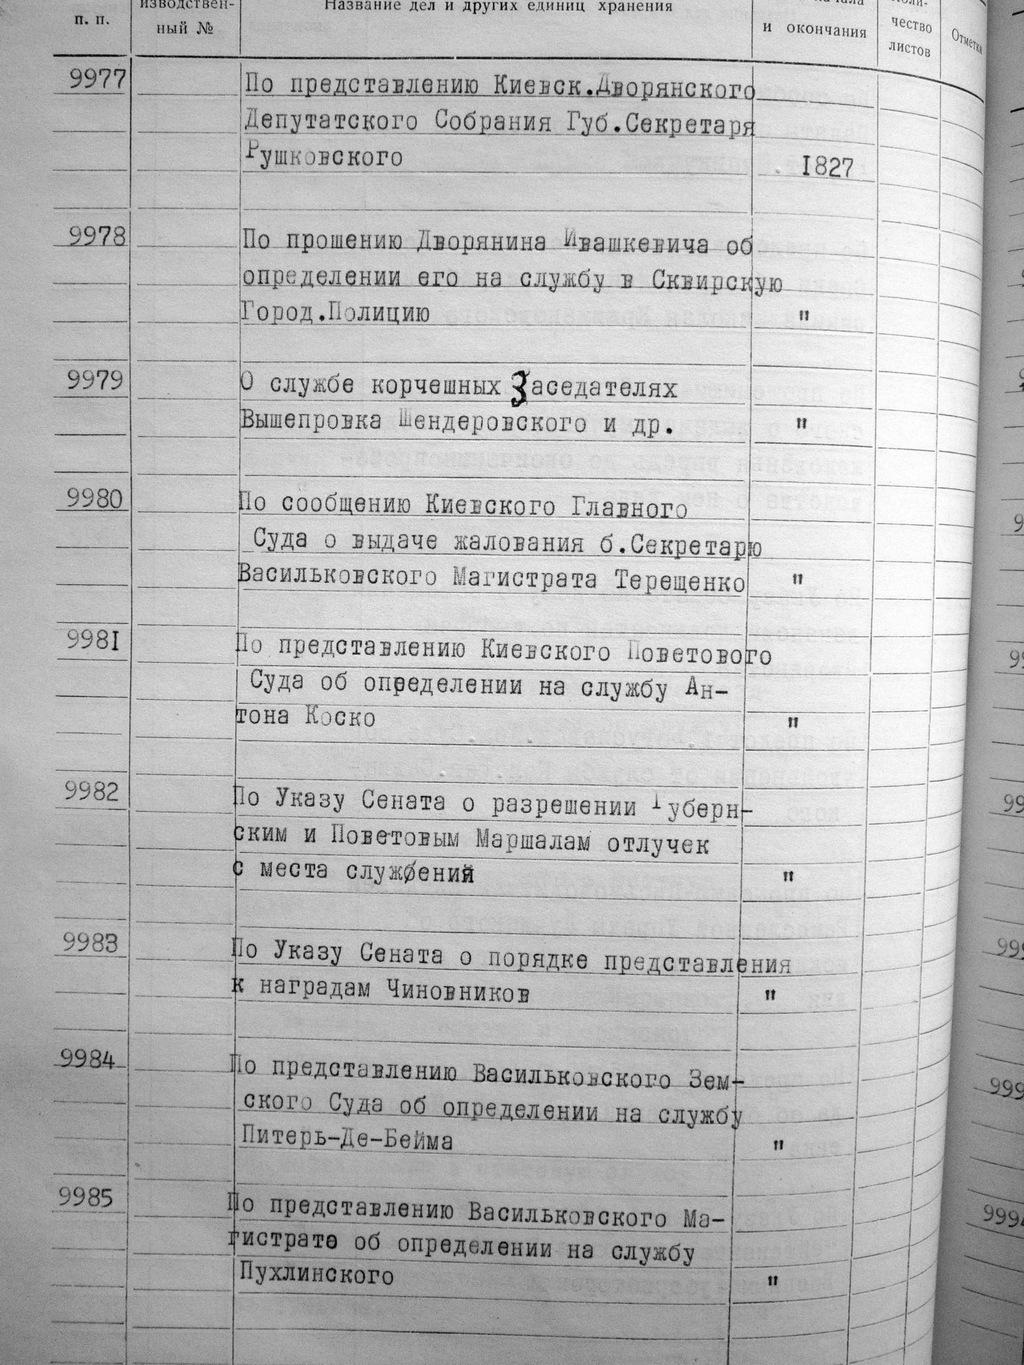 п. п.
изводствен-
ный №
Название дел и других единиц хранения
и окончания
чество
листов
Отметки
9977
По представлению Киевск.Дворянского
Депутатского Собрания Губ.Секретаря
Рушковского
1827
9978
По прошению Дворянина Ивашкевича об
определении его на службу в Сквирскую
Город.Полицию "
9979
О службе корчешных Заседателях
Вышепровка Шендеровского и др. "
9980
По сообщению Киевского Главного
Суда о выдаче жалования б.Секретарю
Васильковского Магистрата Терещенко "
9981
По представлению Киевского Поветового
Суда об определении на службу Ан-
тона Коско "
9982
По Указу Сената о разрешении Губерн-
ским и Поветовым Маршалам отлучек
с места служений "
9983
По Указу Сената о порядке представления
к наградам Чиновников "
9984
По представлению Васильковского Зем-
ского Суда об определении на службу
Питерь-Де-Бейма "
9985
По представлению Васильковского Ма-
гистрате об определении на службу
Пухлинского "